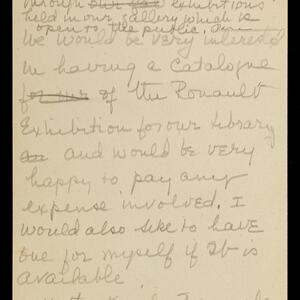 through our exhibitions
held in our gallery which is
open to the public.
We would be very interested
in having a catalogue
for our of the Rouault
Exhibition for our library
and would be very
happy to pay any
expense involved. I
would also like to have
one for myself if it is
available.